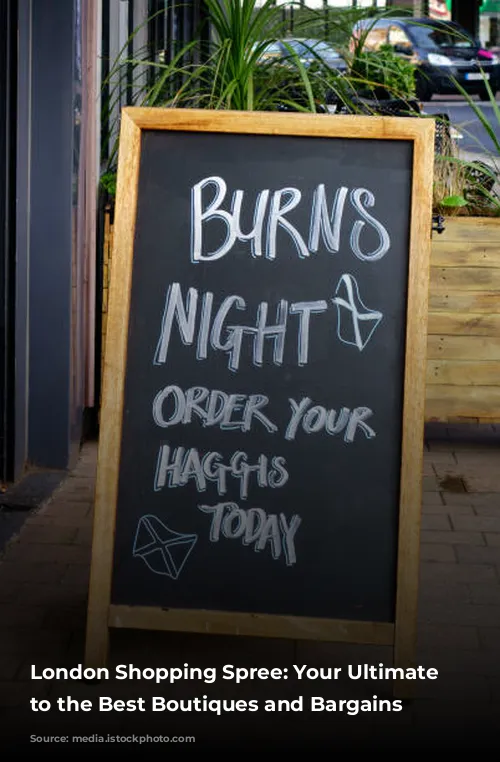 BURNS
NIGHT
ORDER YOUR
HAGGIS
TODAY
London Shopping Spree: Your Ultimate
to the Best Boutiques and Bargains
Source: media.istockphoto.com